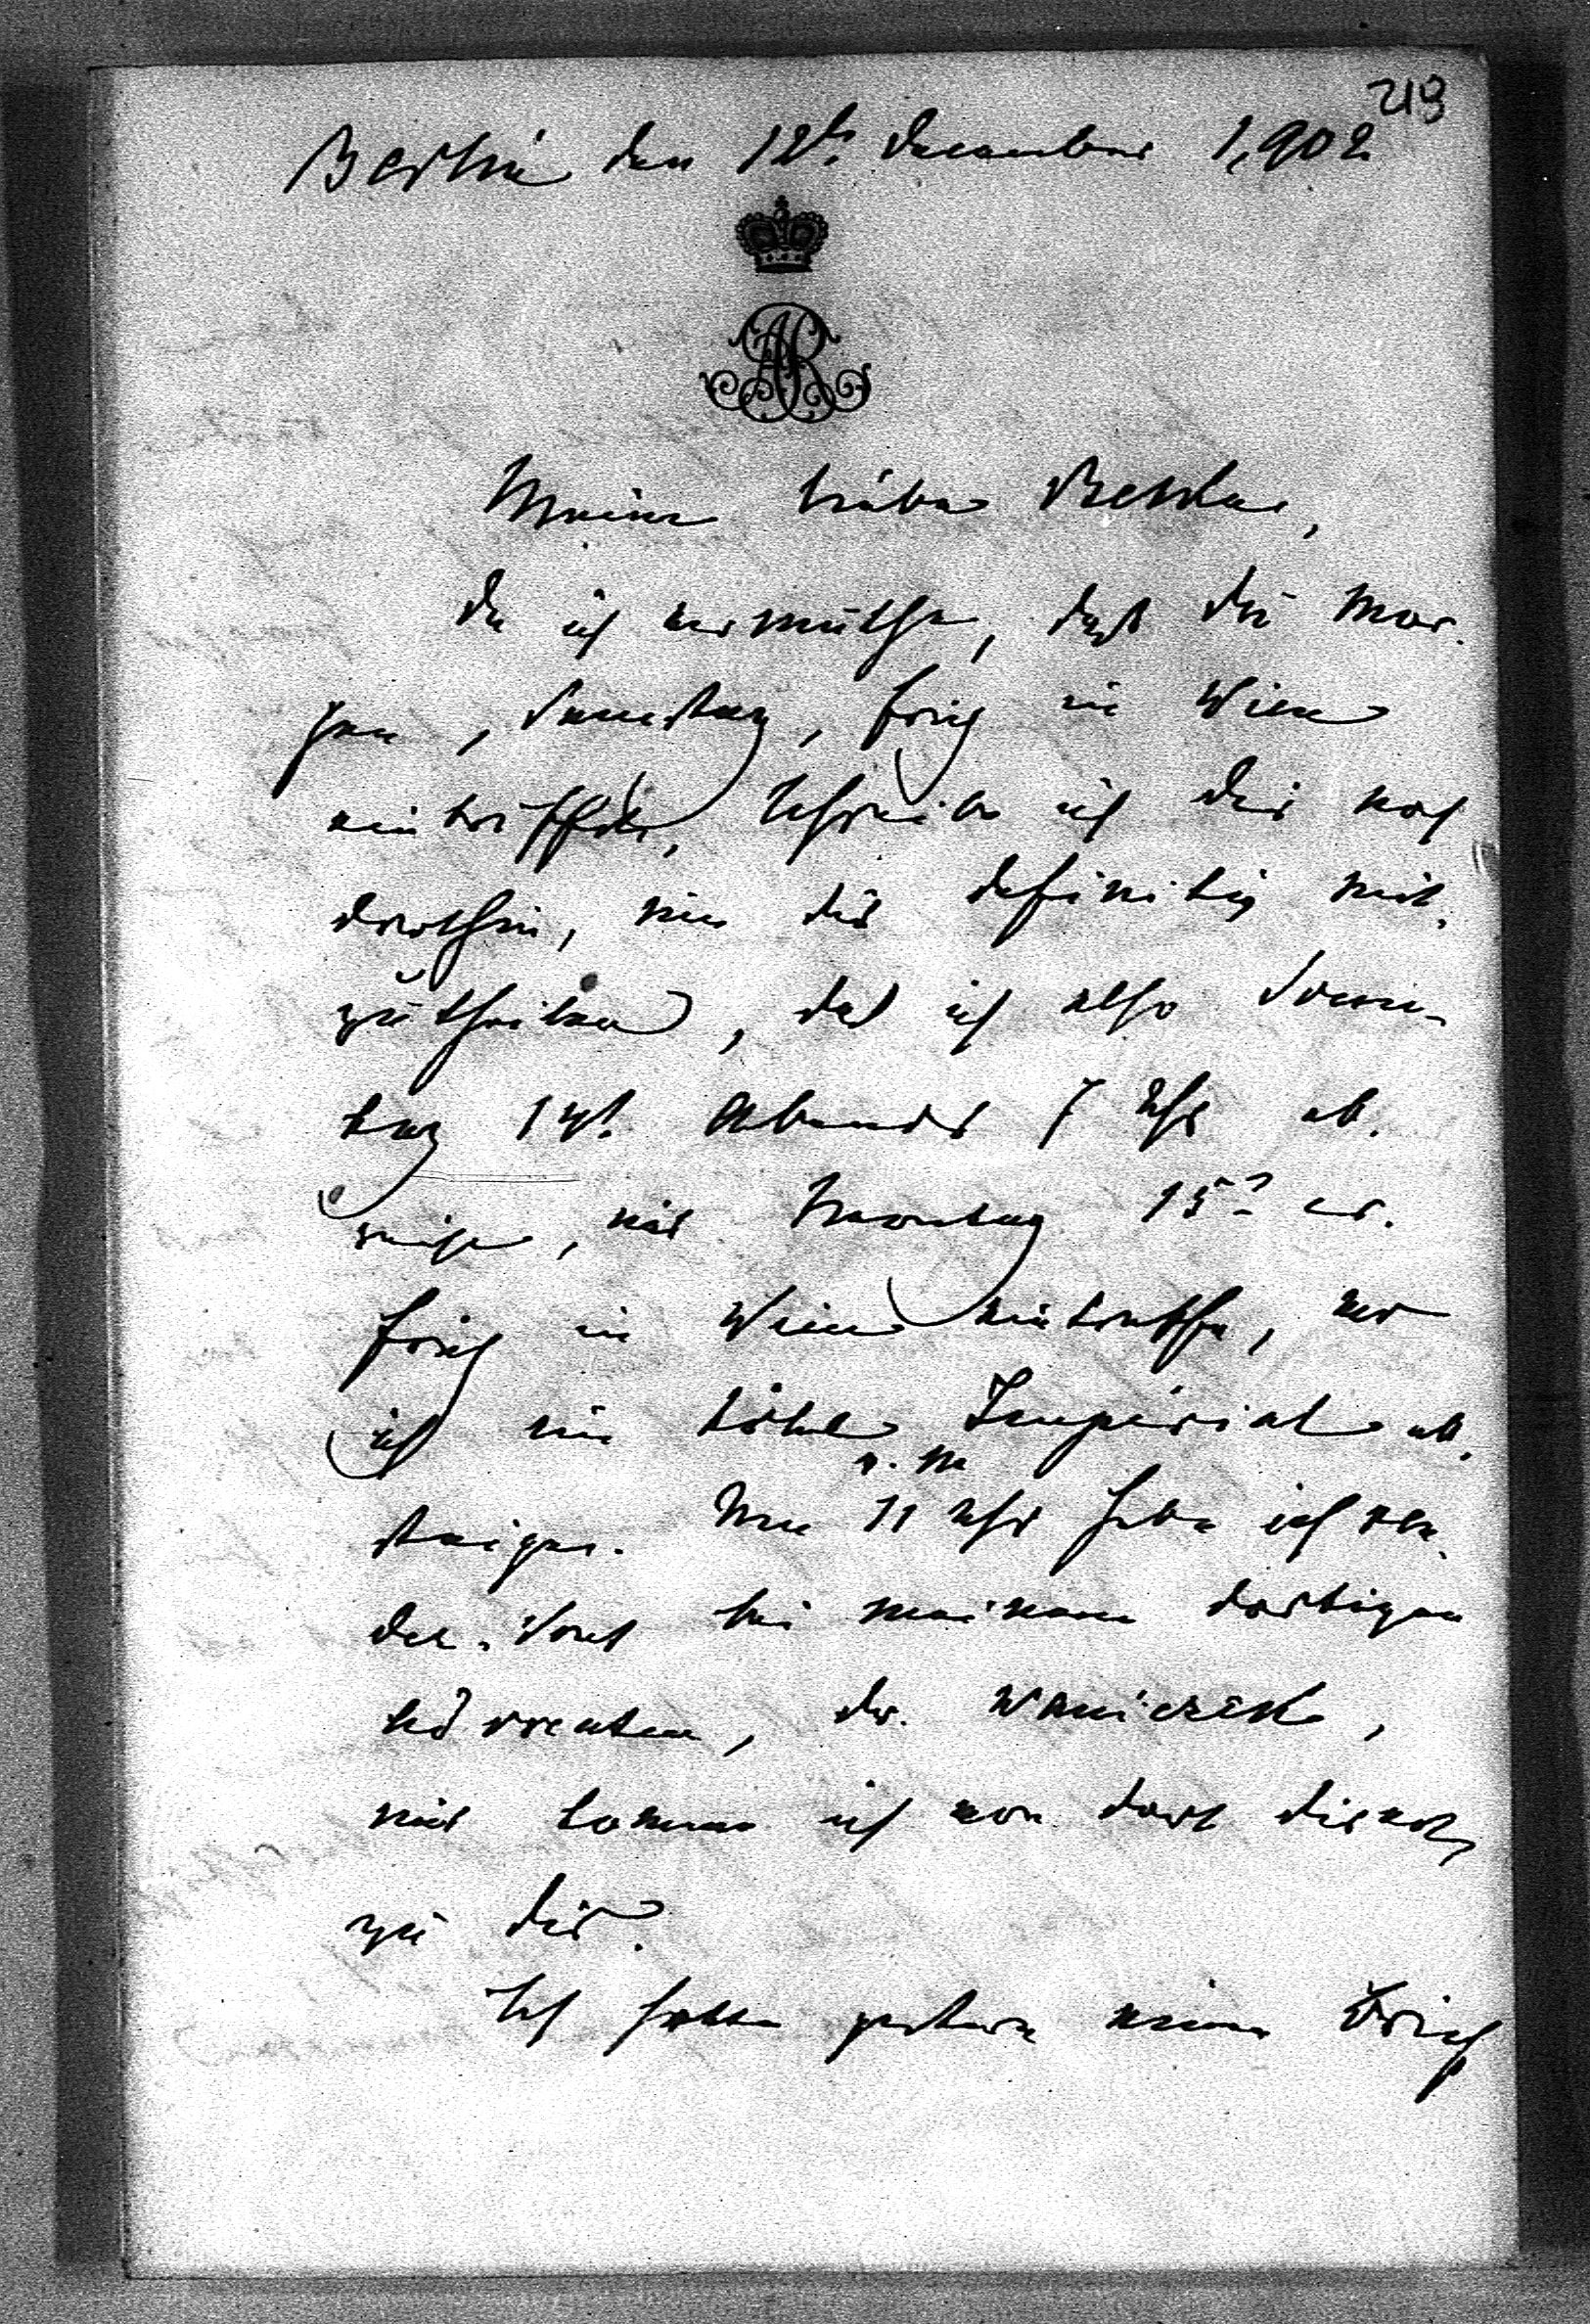 219
Berlin den 12t. December 1,902
AR
Meine liebe
da ich vermuthe, daß Du mor-
gen, Samstag, früh in Wien
eintriffst, schreibe ich Dir noch
dorthin, um Dir definitiv mit-
zutheilen, daß ich also Sonn-
tag 14t. Abends 7 Uhr ab-
reise, und Montag 15t. cr.
früh in Wien eintreffe, wo
ich im Hôtel Imperial ab-
steige. Um 11 Uhr habe ich ren-
dez-vous bei meinem dortigen
, Dr.
und komme ich von dort direct
zu Dir.
Ich hatte gestern einen Brief